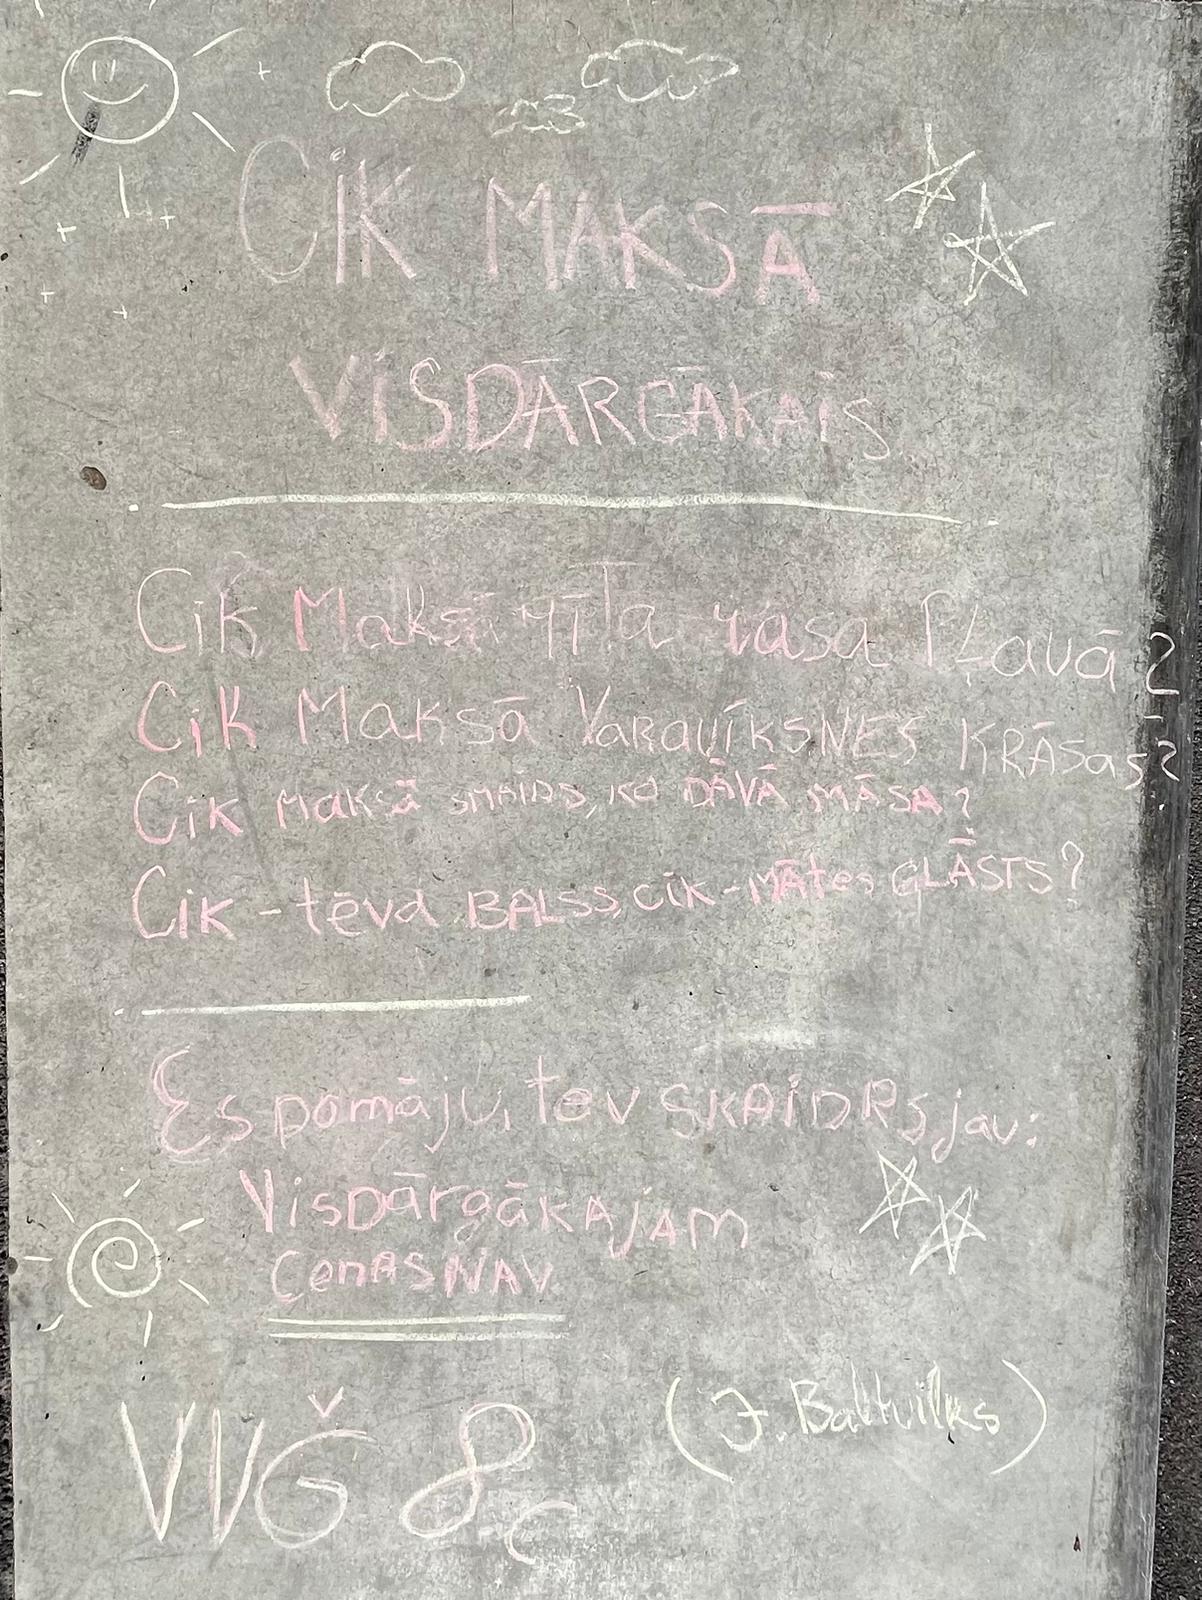 CIK MAKSĀ
VISDĀRGĀKAIS
Cik Maksā rīta rasa Pļavā?
Cik Maksā VaRaVīKSNES KRĀSas?
Cik maksā smaids, ko DĀVĀ MĀSA?
Cik - tēva BALSS, cik - MĀtes GLĀSTS?
Es pamāju, tev SKAIDRS jau:
VisDārgākAjAM
CenAS NAV
VVĞ 8c
(J. Baltvilks)